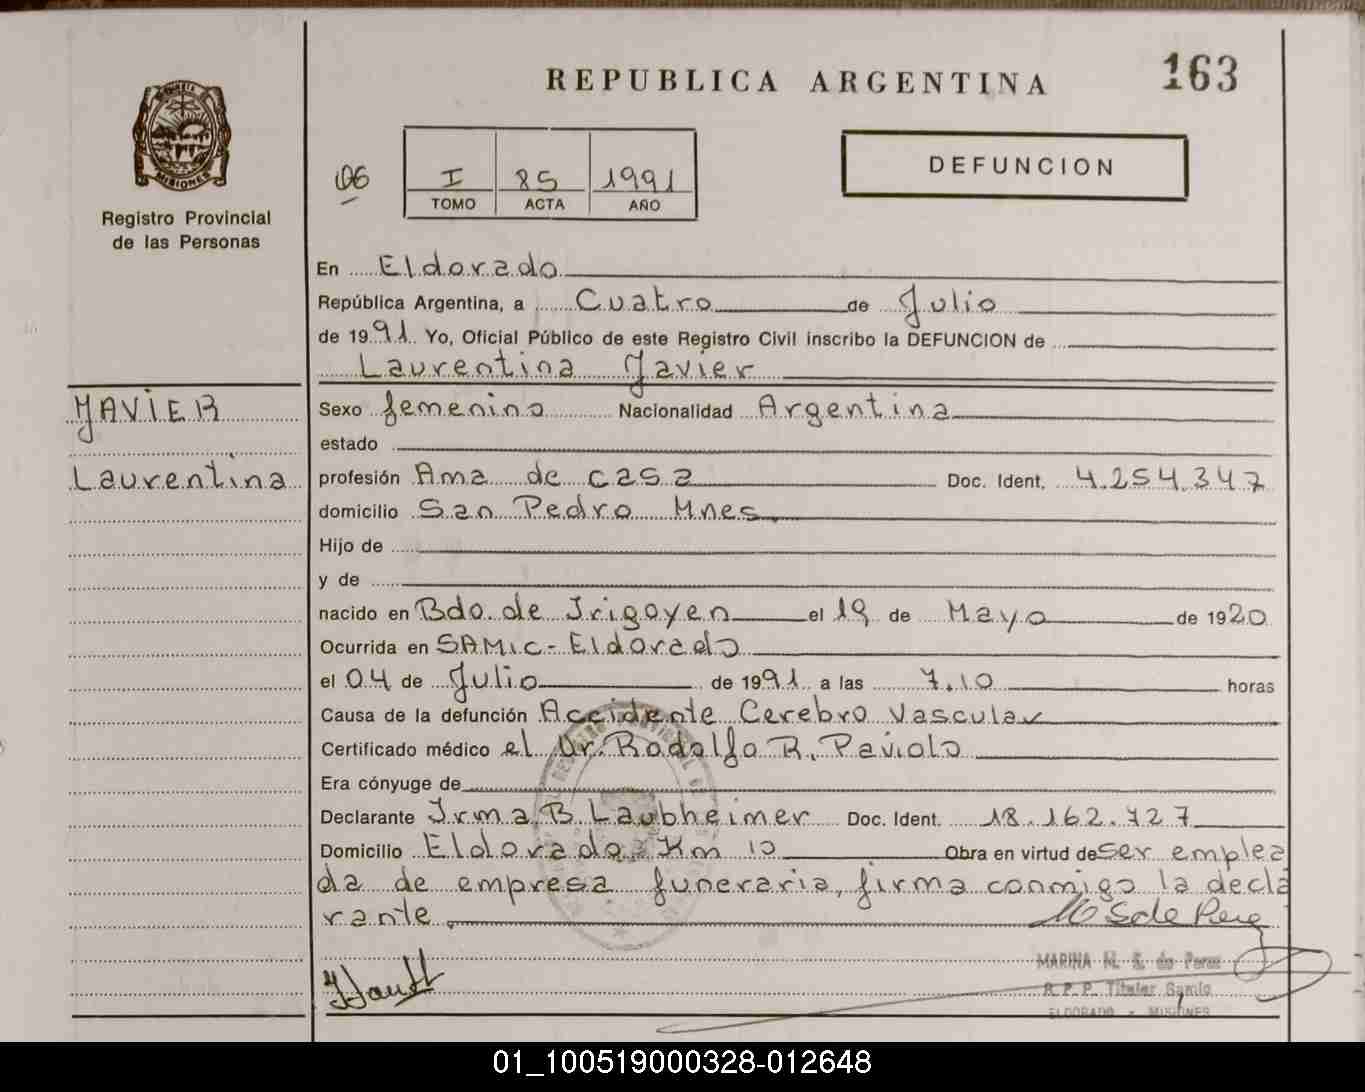 REPUBLICA ARGENTINA
163
MISIONES
Registro Provincial
de las Personas
06
I 85 1991
TOMO ACTA AÑO
DEFUNCION
En Eldorado
República Argentina, a Cuatro de Julio
de 1991. Yo, Oficial Público de este Registro Civil inscribo la DEFUNCION de
Laurentina Javier
JAVIER
Laurentina
Sexo femenino Nacionalidad Argentina
estado
profesión Ama de casa Doc. Ident. 4.254.347
domicilio San Pedro Mnes.
Hijo de
y de
nacido en Bdo. de Irigoyen el 19 de Mayo de 1920
Ocurrida en SAMIC - Eldorado
el 04 de Julio de 1991 a las 7.10 horas
Causa de la defunción Accidente Cerebro Vascular
Certificado médico el Dr. Rodolfo R. Paviolo
Era cónyuge de
Declarante Irma B Laubheimer Doc. Ident. 18.162.727
Domicilio Eldorado Km 10 Obra en virtud de ser emplea
da de empresa funeraria, firma conmigo la decla
rante.
MARINA M. S. de Perez
R.P.P. Titular Samic
ELDORADO - MISIONES
01_100519000328-012648